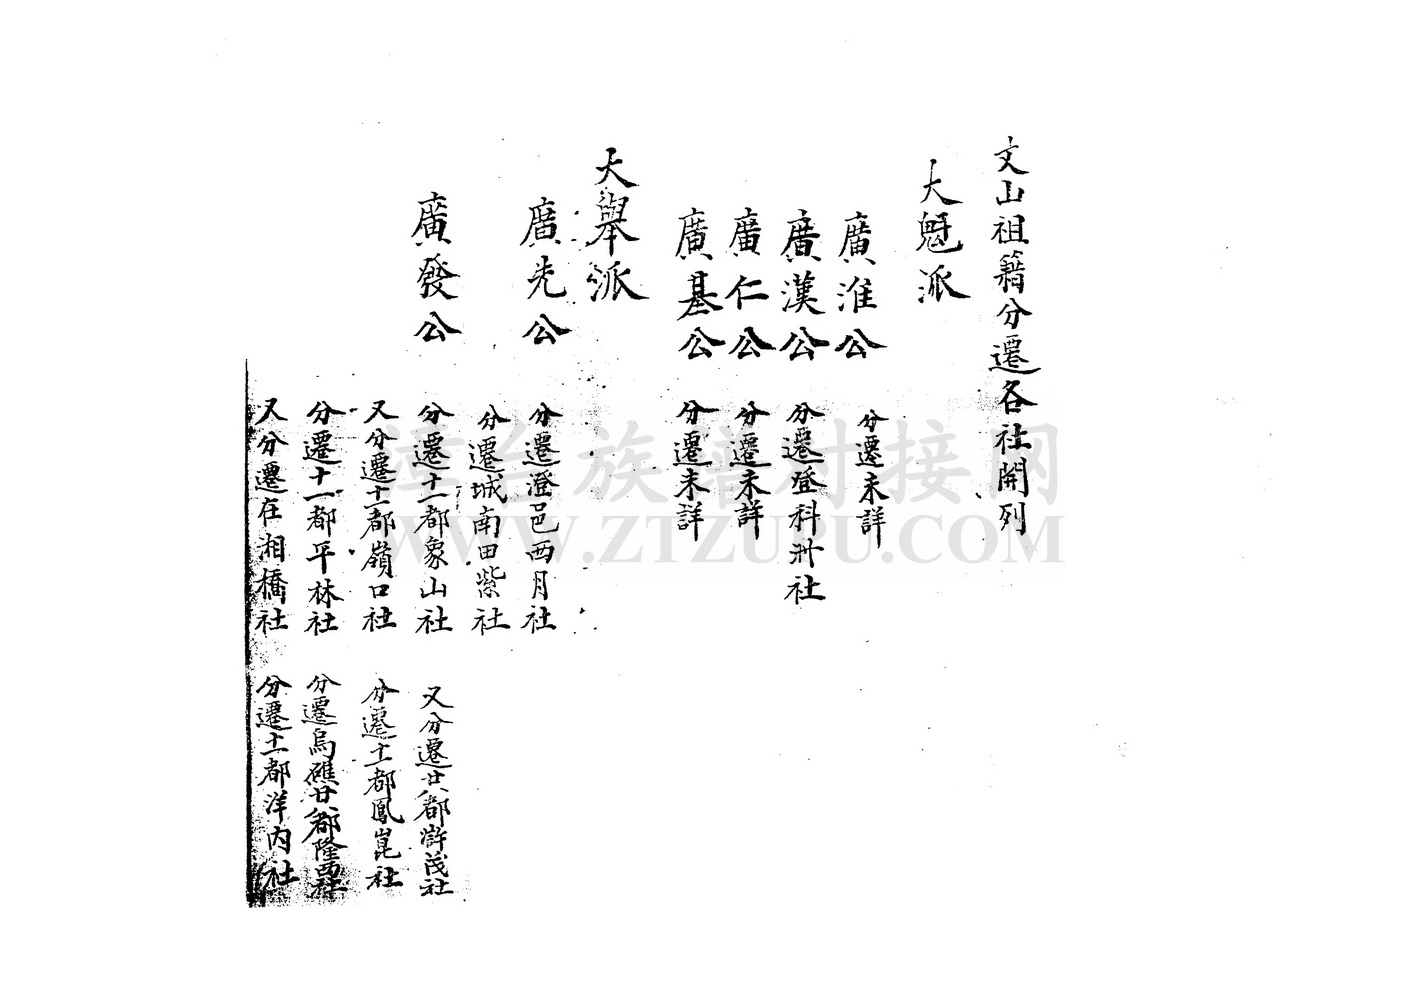 文山祖籍分遷各社開列
大魁派
廣淮公　分遷未詳
廣漢公　分遷登科洲社
廣仁公　分遷未詳
廣基公　分遷未詳
大舉派
廣光公　分遷澄邑西月社
分遷城南田紫社
廣發公　分遷十一都象山社　又分遷廿八都滸茂社
又分遷十一都嶺口社　分遷十一都鳳崑社
分遷十一都平林社　分遷烏礁廿八都隆西社
又分遷在相橋社　分遷十一都洋內社
漳台族谱对接网
WWW.ZTZUPU.COM